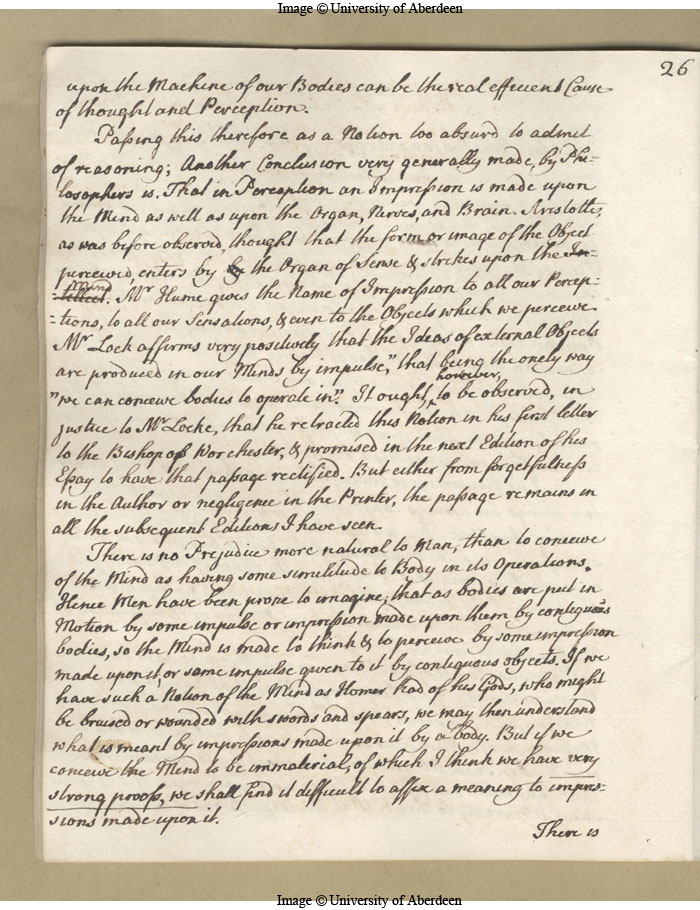 Image © University of Aberdeen
26
upon the Machine of our Bodies can be the real efficient Cause
of thought and Perception.
Passing this therefore as a Notion too absurd to admit
of reasoning; Another Conclusion very generally made, by Phi=
losophers is. That in Perception an Impression is made upon
the Mind as well as upon the Organ, Nerves, and Brain. Aristotle,
as was before observed, thought that the form or image of the Object
perceived, enters by the Organ of Sense & strikes upon the In=
Mind
=tellect. Mr Hume gives the Name of Impression to all our Percep=
=tions, to all our Sensations, & even to the Objects which we perceive.
Mr Lock affirms very positively that the Ideas of external Objects
are produced in our Minds by impulse, "that being the onely way
"we can conceive bodies to operate in". It ought, to be observed, in
however,
justice to Mr Locke, that he retracted this Notion in his first letter
to the Bishop of Worchester, & promised in the next Edition of his
Essay to have that passage rectified. But either from forgetfulness
in the Author or negligence in the Printer, the passage remains in
all the subsequent Editions I have seen.
There is no Prejudice more natural to Man, than to conceive
of the Mind as having some similitude to Body in its Operations.
Hence Men have been prone to imagine, that as bodies are put in
Motion by some impulse or impression made upon them by contiguous
bodies, so the Mind is made to think & to perceive by some impression
made upon it, or some impulse given to it by contiguous objects. If we
have such a Notion of the Mind as Homer had of his Gods, who might
be bruised or wounded with swords and spears, we may then understand
what is meant by impressions made upon it by a body. But if we
conceive the Mind to be immaterial, of which I think we have very
strong proofs, we shall find it difficult to affix a meaning to impres=
sions made upon it.
There is
Image © University of Aberdeen